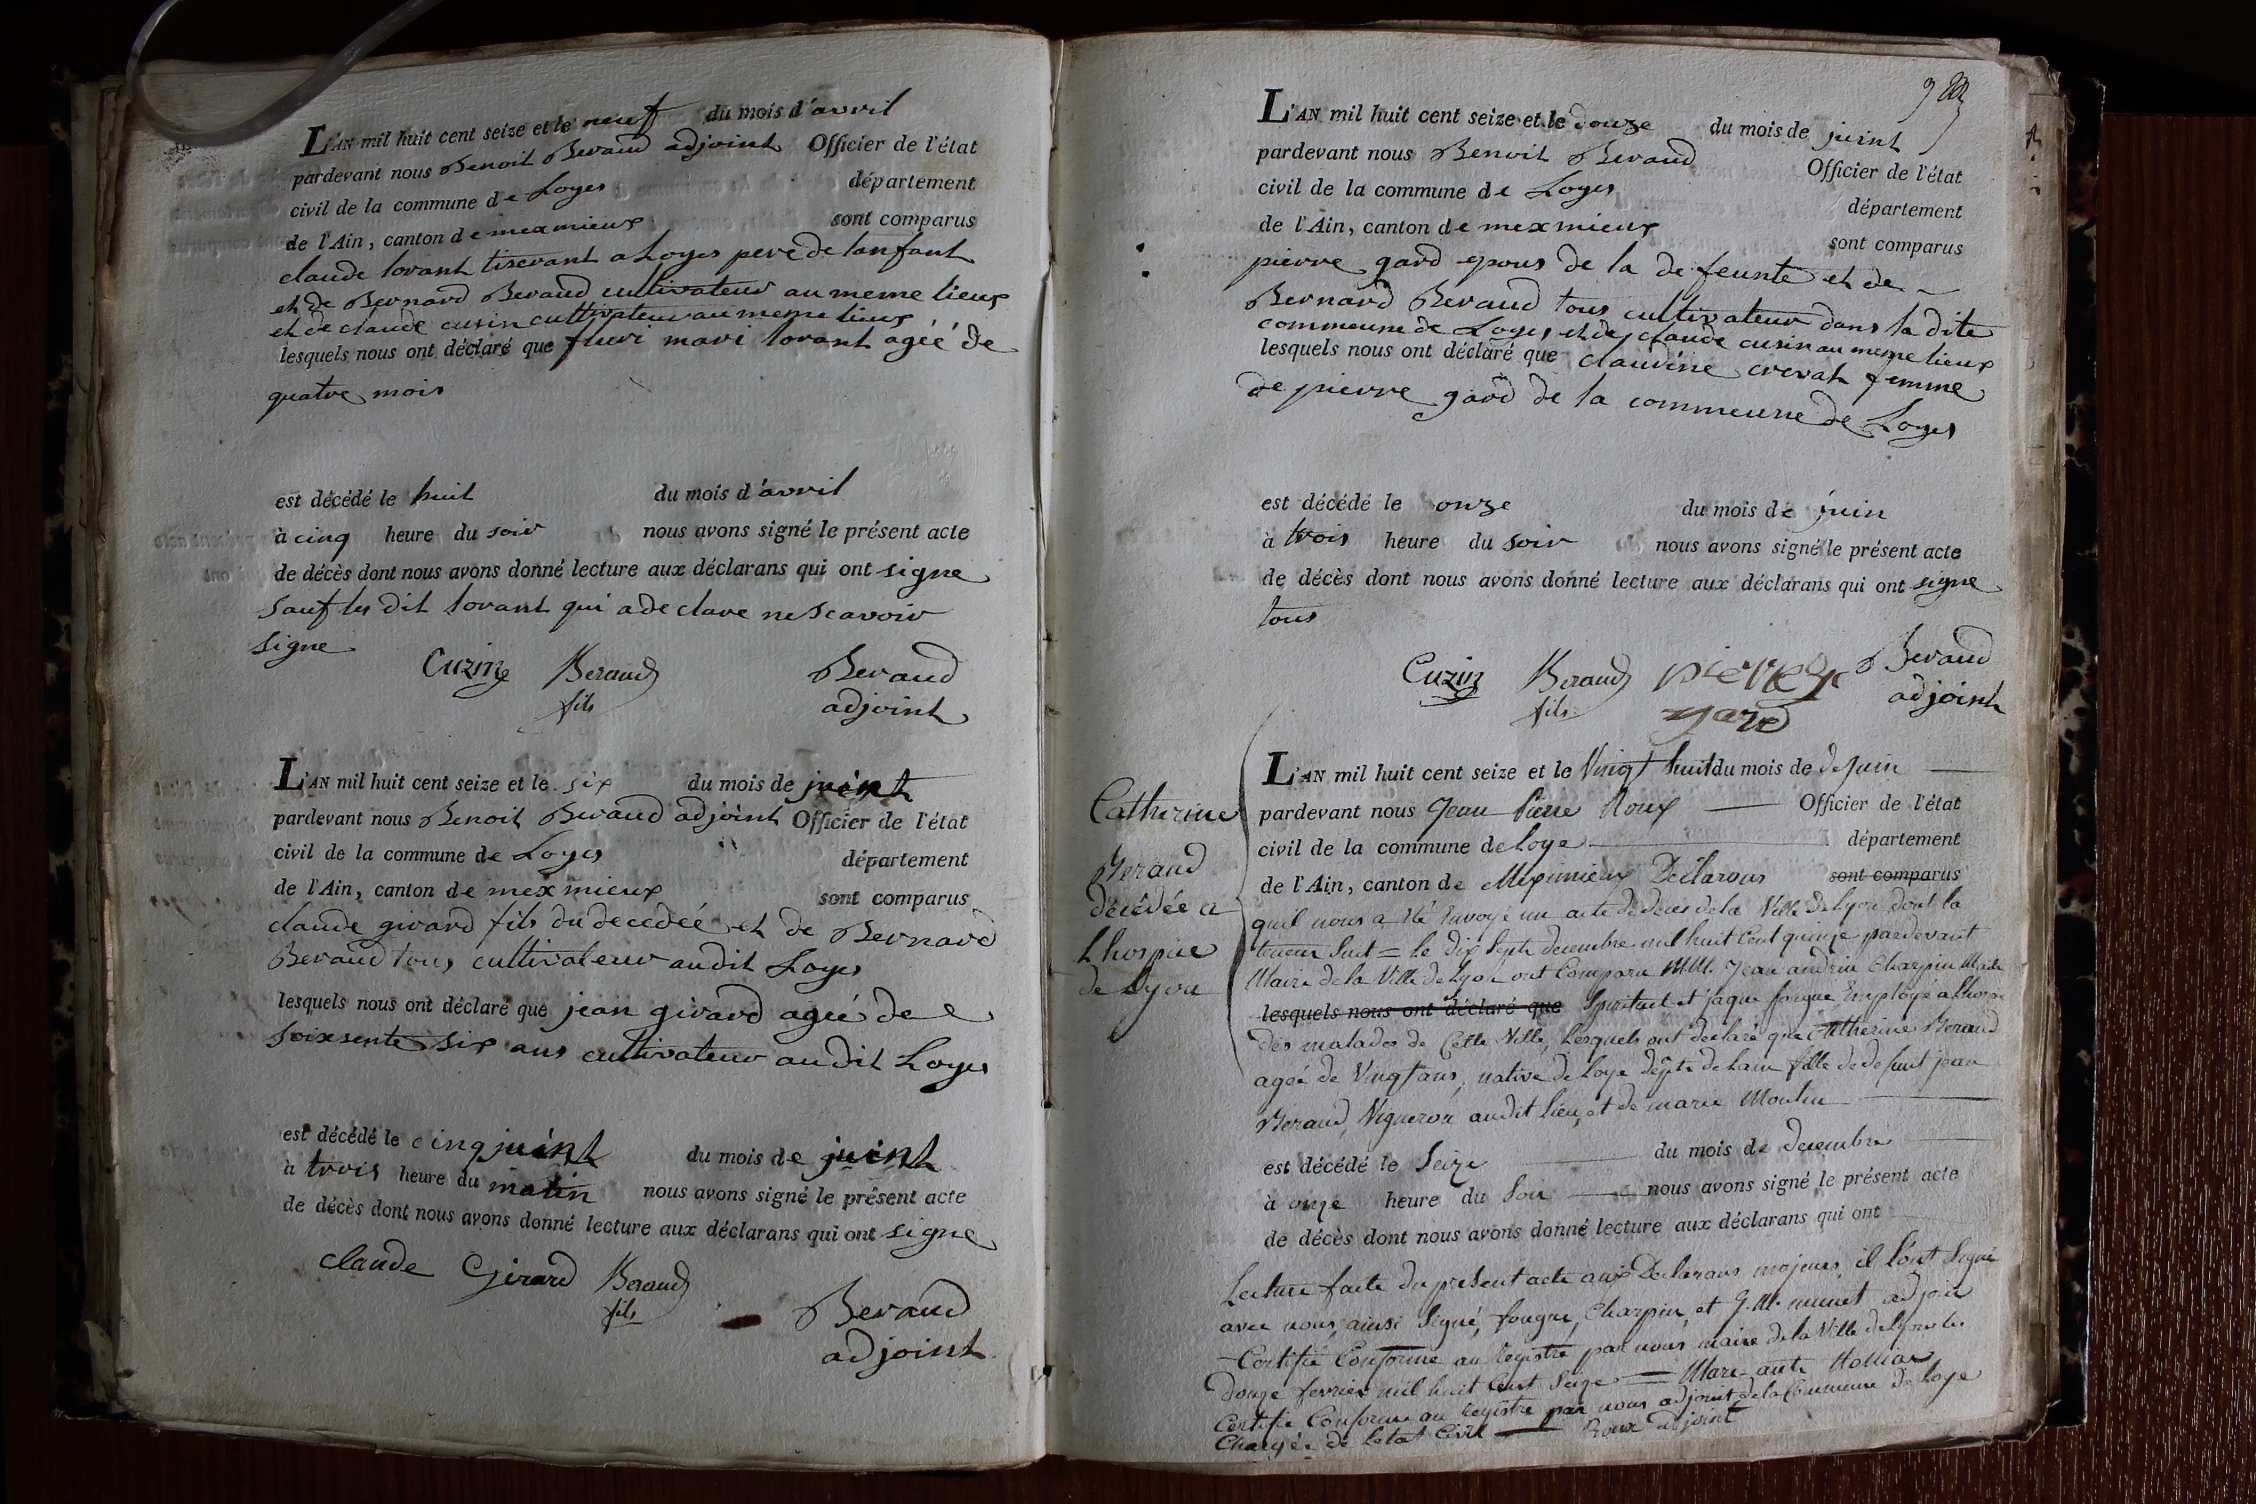 L'AN mil huit cent seize et le neuf du mois d'avril
pardevant nous Benoit Beraud adjoint Officier de l'état
civil de la commune de Loyes département
de l'Ain, canton de meximieux sont comparus
claude lorant tiserant a Loyes pere de lanfant
et de Bernard Beraud cultivateur au meme lieux
et de claude cusin cultivateur au meme lieux
lesquels nous ont déclaré que fleuri mari lorant agéé de
quatre mois
est décédé le huit du mois d'avril
à cinq heure du soir nous avons signé le présent acte
de décès dont nous avons donné lecture aux déclarans qui ont signe
sauf le dit lorant qui a declare ne scavoir
signe
Cuzin Beraud Beraud
fils adjoint
L'AN mil huit cent seize et le six du mois de juint
pardevant nous Benoit Beraud adjoint Officier de l'état
civil de la commune de Loyes département
de l'Ain, canton de meximieux sont comparus
claude girard fils du decedéé et de Bernard
Beraud tous cultivateur audit Loyes
lesquels nous ont déclaré que jean girard ageé de
soixsente six ans cultivateur audit Loyes
est décédé le cinq juint du mois de juint
à trois heure du matin nous avons signé le présent acte
de décès dont nous avons donné lecture aux déclarans qui ont signe
claude Girard Beraud
fils Beraud
adjoint
L'AN mil huit cent seize et le douze du mois de juint
pardevant nous Benoit Beraud Officier de l'état
civil de la commune de Loyes département
de l'Ain, canton de meximieux sont comparus
pierre gard epous de la defeunte et de
Bernard Beraud tous cultivateur dans la dite
commeune de Loyes et de claude cusin au meme lieux
lesquels nous ont déclaré que claudine crevat femme
de pierre gard de la commeune de Loyes
est décédé le onze du mois de juin
à trois heure du soir nous avons signé le présent acte
de décès dont nous avons donné lecture aux déclarans qui ont signe
tous
Cuzin Beraud pierre Beraud
fils gard adjoint
Catherine
Beraud
décédée a
Lhospice
de Lyon
L'AN mil huit cent seize et le Vingt huit du mois de de Juin
pardevant nous Jean Pierre Roux Officier de l'état
civil de la commune de Loye département
de l'Ain, canton de Meximieux Déclarons sont comparus
quil nous a été Envoyé un acte de déces de la Ville de Lyon dont la
teneur suit = le dix sept decembre mil huit Cent quinze pardevant
Maire de la Ville de Lyon ont Comparu MM. Jean Charpin
lesquels nous ont déclaré que Spirituel et jaque fougue Employé a Lhospice
des malades de Cette Ville, lesquels ont déclaré que Catherine Beraud
ageé de Vingt ans, native de Loye depte de Lain fille de defunt jean
Beraud, Vigneron audit Lieu, et de marie Moulin
est décédé le Seize du mois de decembre
à onze heure du soir nous avons signé le présent acte
de décès dont nous avons donné lecture aux déclarans qui ont
Lecture faite du present acte aux Declarans majeurs, il l'ont signé
avec nous, ainsi signé, fougue, Charpin, et adjoint
Certifié Conforme au Registre par nous maire de la Ville de Lyon le
douze fevrier mil huit Cent Seize
Certifié Conforme au Registre par nous adjoint de la Commune de Loye
Chargée de letat Civil Roux adjoint